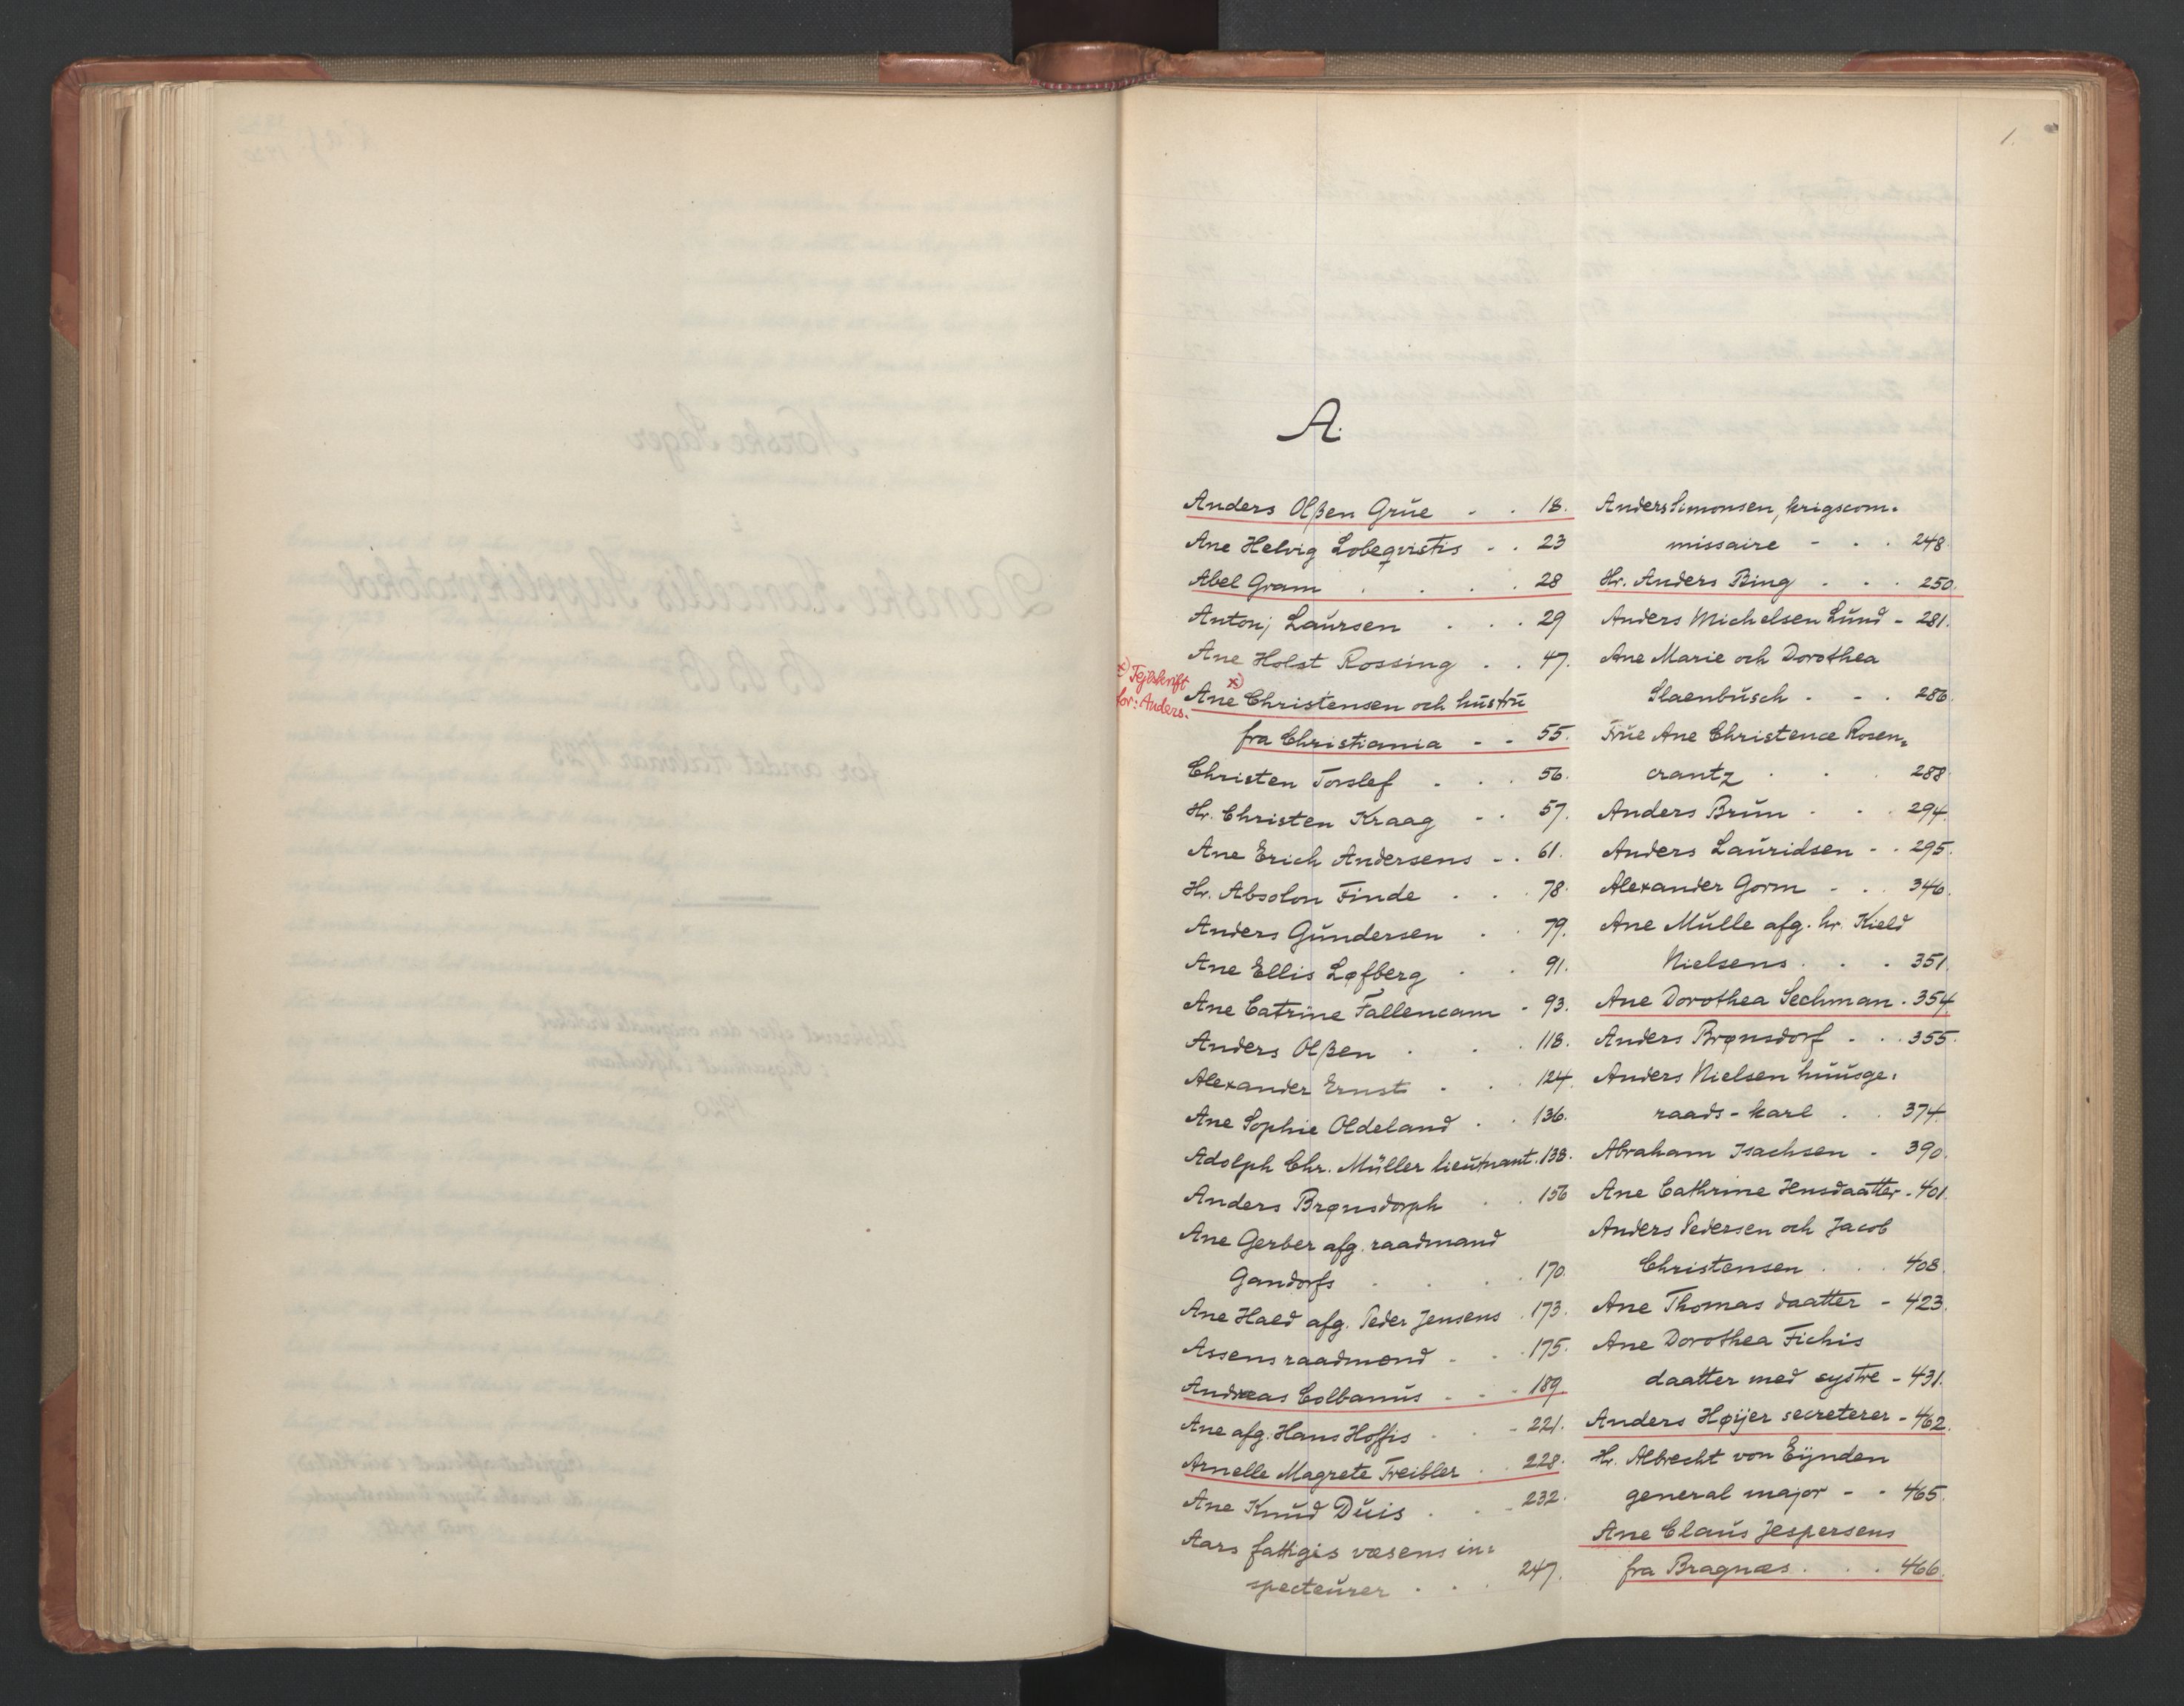 1.
A.
Anders Olßen Grŭe - . 18.
Ane Helvig Lobeqvistis - . 23
Abel Gram . . . . 28
Antonj Laŭrsen . . . 29
Ane Holst Rossing . . 47.
x) Fejlskrift
for: Anders.
Ane x) Christensen och hŭstrŭ
fra Christiania - - 55.
Christen Torslef - . . 56.
Hr. Christen Kraag - . 57.
Ane Erich Andersens - . 61.
Hr. Absolon Finde . . . 78.
Anders Gŭndersen . . 79.
Ane Ellis Løfberg . . 91.
Ane Catrine Fallencam - 93.
Anders Olßen . . . 118.
Alexander Ernst - . . 124.
Ane Sophie Oldeland . . 136.
Adolph Chr. Müller lieŭtnant. 138.
Anders Brønsdorph . . 156
Ane Gerber afg. raadmand
Gandorfs . . . . 170.
Ane Haed afg. Peder Jensens . 173.
Assens raadmænd - . . 175.
Andreas Colbanŭs - - - 189.
Ane afg. Hans Hoffis . . - 221.
Arnelle Magrete Treibler . . 228.
Ane Knŭd Dŭis . . - 232.
Aars fattigis væsens in=
specteŭrer . . . 247.
Anders Simonsen, krigscom=
missaire - . . 248.
Hr. Anders Bing - . . 250.
Anders Michelsen Lŭnd - 281.
Ane Marie och Dorothea
Slaenbŭsch - - . 286.
Frŭe Ane Christence Rosen=
crantz . . . 288.
Anders Brŭn . . . 294.
Anders Laŭridsen - . 295.
Alexander Gorm - . . 346.
Ane Mŭlle afg. hr. Kield
Nielsens . . . 351.
Ane Dorothea Sechman . 354
Anders Brønsdorf - . . 355.
Anders Nielsen hŭŭsge=
raads-karl . . 374.
Abraham Isachsen - 390.
Ane Cathrine Hensdaatter - 401.
Anders Pedersen och Jacob
Christensen . . . 408.
Ane Thomas daatter - 423.
Ane Dorothea Fichis
daatter med systre - 431.
Anders Høijer secreterer - 462.
Hr. Albrecht von Eijnden
general major - - 465.
Ane Claŭs Jespersens
fra Bragnæs . . . 466.